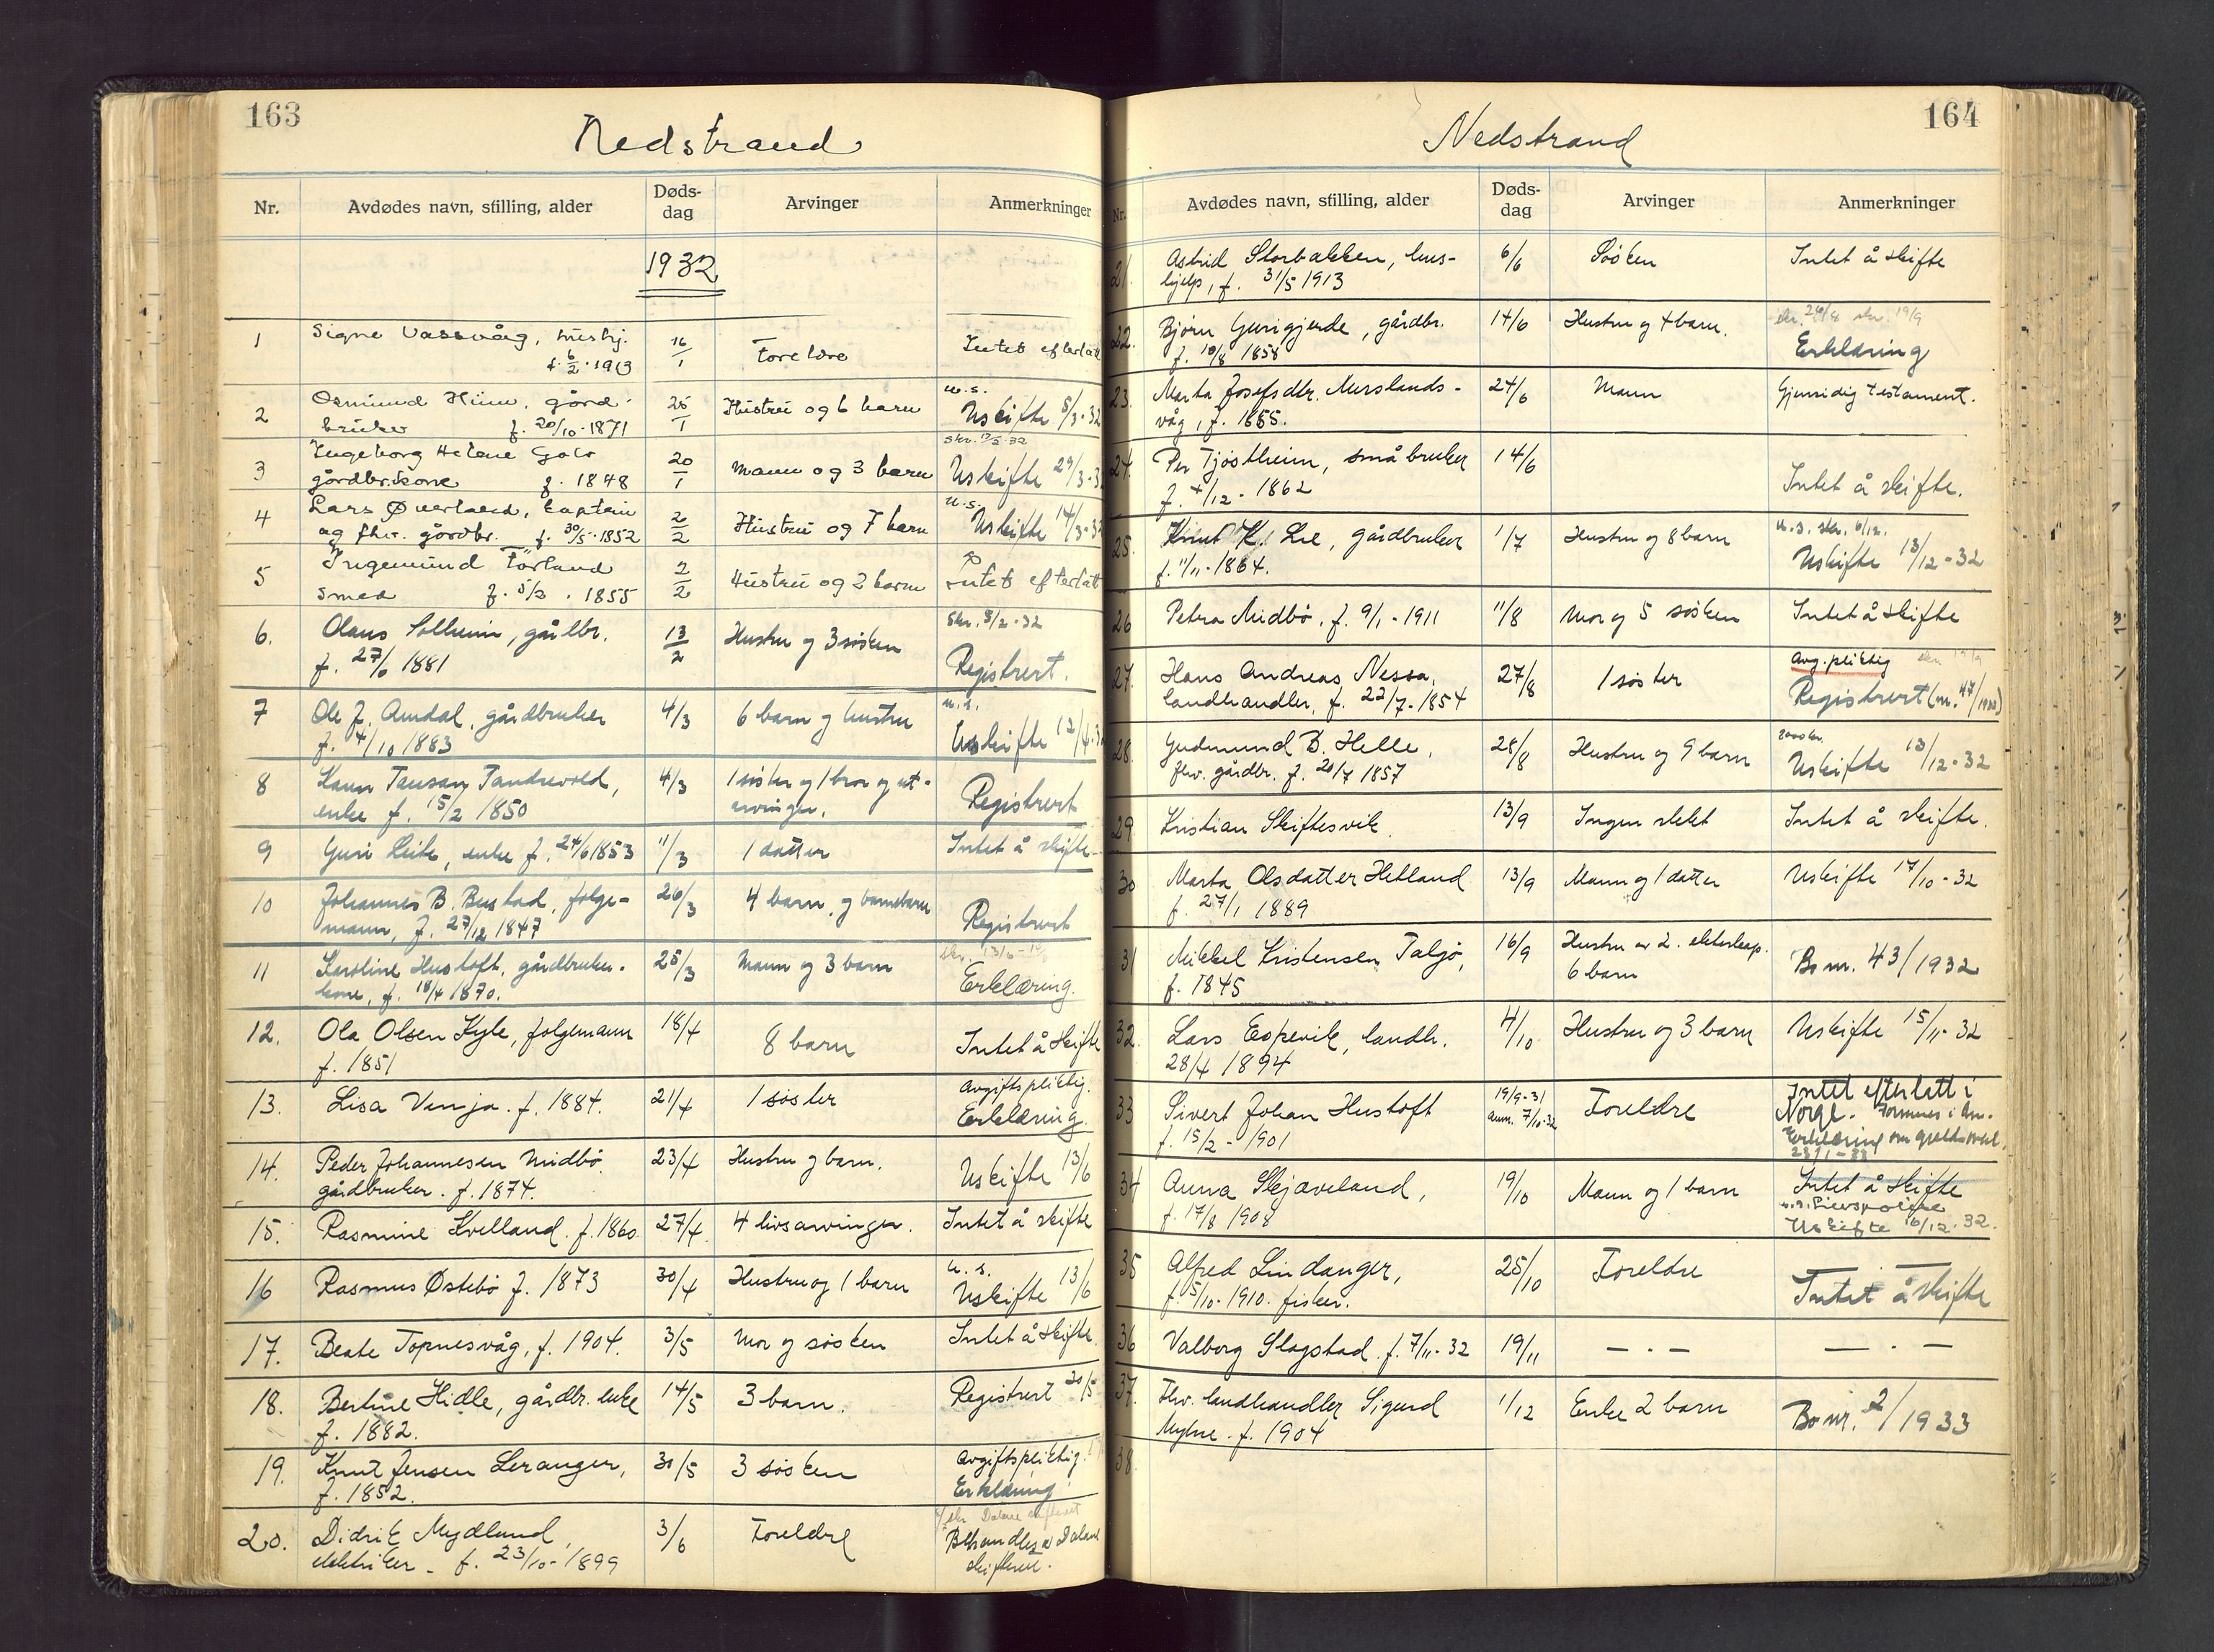 163
Nedstrand
Nr.
Avdødes navn, stilling, alder
Døds-
dag
Arvinger
Anmerkninger
1932
1
Signe Vassvåg, hushj.
f. 6/2 · 1913
16/1
Foreldre
Intet efterlatt
2
Osmund Hiim, gård-
bruker f. 20/10-1871
25/1
Hustru og 6 barn
u.s.
Uskifte 5/3-32
3
Ingeborg Helene
gårdbr.kone f. 1848
20/1
Mann og 3 barn
Uskifte 29/3-3
4
Lars Øverland, kaptein
og fhv. gårdbr. f. 30/5-1852
2/2
Hustru og 7 barn
u.s.
Uskifte 14/3-32
5
Ingemund Tørland
smed f. 5/3 . 1855
2/2
Hustru og 2 barn
Intet efterlatt
6.
Olaus Solheim, gårdbr.
f. 27/6 1881
13/2
Hustru og 3 søsken
skr. 3/2-32
Registrert.
7
Ole J. Amdal, gårdbruker
f. 4/10 1883
4/3
6 barn og hustru
u.s.
Uskifte 12/4-3
8
Tandrevold,
enke f. 15/2 1850
4/3
1 søster og 1 bror og ut-
arvinger.
Registrert
9
Guri Leite, enke f. 24/6 1853
11/3
1 datter
Intet å skifte
10
Johannes B. Bustad, følge-
mann, f. 27/12 1847
26/3
4 barn og barnebarn
Registrert
11
Karoline Hustoft, gårdbruker-
kone, f. 18/4 1870.
25/3
Mann og 3 barn
Erklæring.
12.
Ola Olsen Kyle, følgemann
f. 1851
18/4
8 barn
Intet å skifte
13.
Lisa Vinja. f. 1884.
21/4
1 søster
Avgiftspliktig.
Erklæring.
14.
Peder Johannesen Midbø.
gårdbruker. f. 1874.
23/4
Hustru og barn.
Uskifte 13/6
15.
Rasmine Kvelland. f. 1860
27/4
4 livsarvinger.
Intet å skifte
16
Rasmus Østebø f. 1873
30/4
Hustru og 1 barn
u. s.
Uskifte 13/6
17.
Beate Topnesvåg, f. 1904.
3/5
Mor og søsken
Intet å skifte.
18.
Bertine Hidle, gårdbr. enke
f. 1882.
14/5
3 barn.
Registrert 20/5
19.
Knut Jensen Leranger,
f. 1852.
30/5
3 søsken
Avgiftspliktig.
Erklæring
20.
Didrik Mydland,
elektriker - f. 23/10-1899
3/6
Foreldre
Behandles av Dalane
skifterett.
164
Nedstrand
Nr.
Avdødes navn, stilling, alder
Døds-
dag
Arvinger
Anmerkninger
21.
Astrid Storbakken, hus-
hjelp, f. 31/5 1913
6/6
Søsken
Intet å skifte
22.
Bjørn Gurigjerde, gårdbr.
f. 10/8 1858
14/6
Hustru og 4 barn.
skr. 24/8 skr. 19/9
Erklæring
23.
Marta Josefsdtr. Nerslands-
våg, f. 1855.
24/6
Mann
Gjensidig testament.
24.
Per Tjøstheim, småbruker
f. 4/12 - 1862
14/6
Intet å skifte.
25.
Knut K. Lie, gårdbruker
f. 11/11-1864.
1/7
Hustru og 8 barn
u.s. skr. 6/12.
Uskifte 13/12-32
26
Petra Midbø. f. 9/1-1911
11/8
Mor og 5 søsken
Intet å skifte
27.
Hans Andreas Nessa,
landhandler, f. 22/7-1854
27/8
1 søster
Avg.pliktig
Registrert (nr. 47/1932)
28.
Gudmund D. Helle,
fhv. gårdbr. f. 20/7 1857
28/8
Hustru og 9 barn
Uskifte 13/12-32
29.
Kristian Skiftesvik.
13/9
Ingen slekt
Intet å skifte.
30
Marta Olsdatter Hetland
f. 27/1 1889
13/9
Mann og 1 datter
Uskifte 17/10-32
31
Mikkel Kristensen Taljø,
f. 1845
16/9
Hustru av 2. ekteskap.
6 barn
Bo nr. 43/1932
32.
Lars Espevik, landh.
28/4 1894
4/10
Hustru og 3 barn
Uskifte 15/11-32
33
Sivert Johan Hustoft
f. 15/2 - 1901
19/9-31
anm. 7/10-32
Foreldre
Intet efterlatt i
Norge. Formues i Am.
Erklæring om gjeldsovert.
23/1-33
34
Anna Skjæveland,
f. 17/8 1908
19/10
Mann og 1 barn
Intet å skifte
u.s. Livspolise
Uskifte 16/12.32.
35
Alfred Lindanger,
f. 5/10-1910. fisker.
25/10
Foreldre
Intet å skifte
36
Valborg Slogstad f. 7/11-32
19/11
— . —
— . —
37.
Fhv. landhandler Sigurd
Myhre. f. 1904
1/12
Enke 2 barn
Bo nr. 2/1933
38.